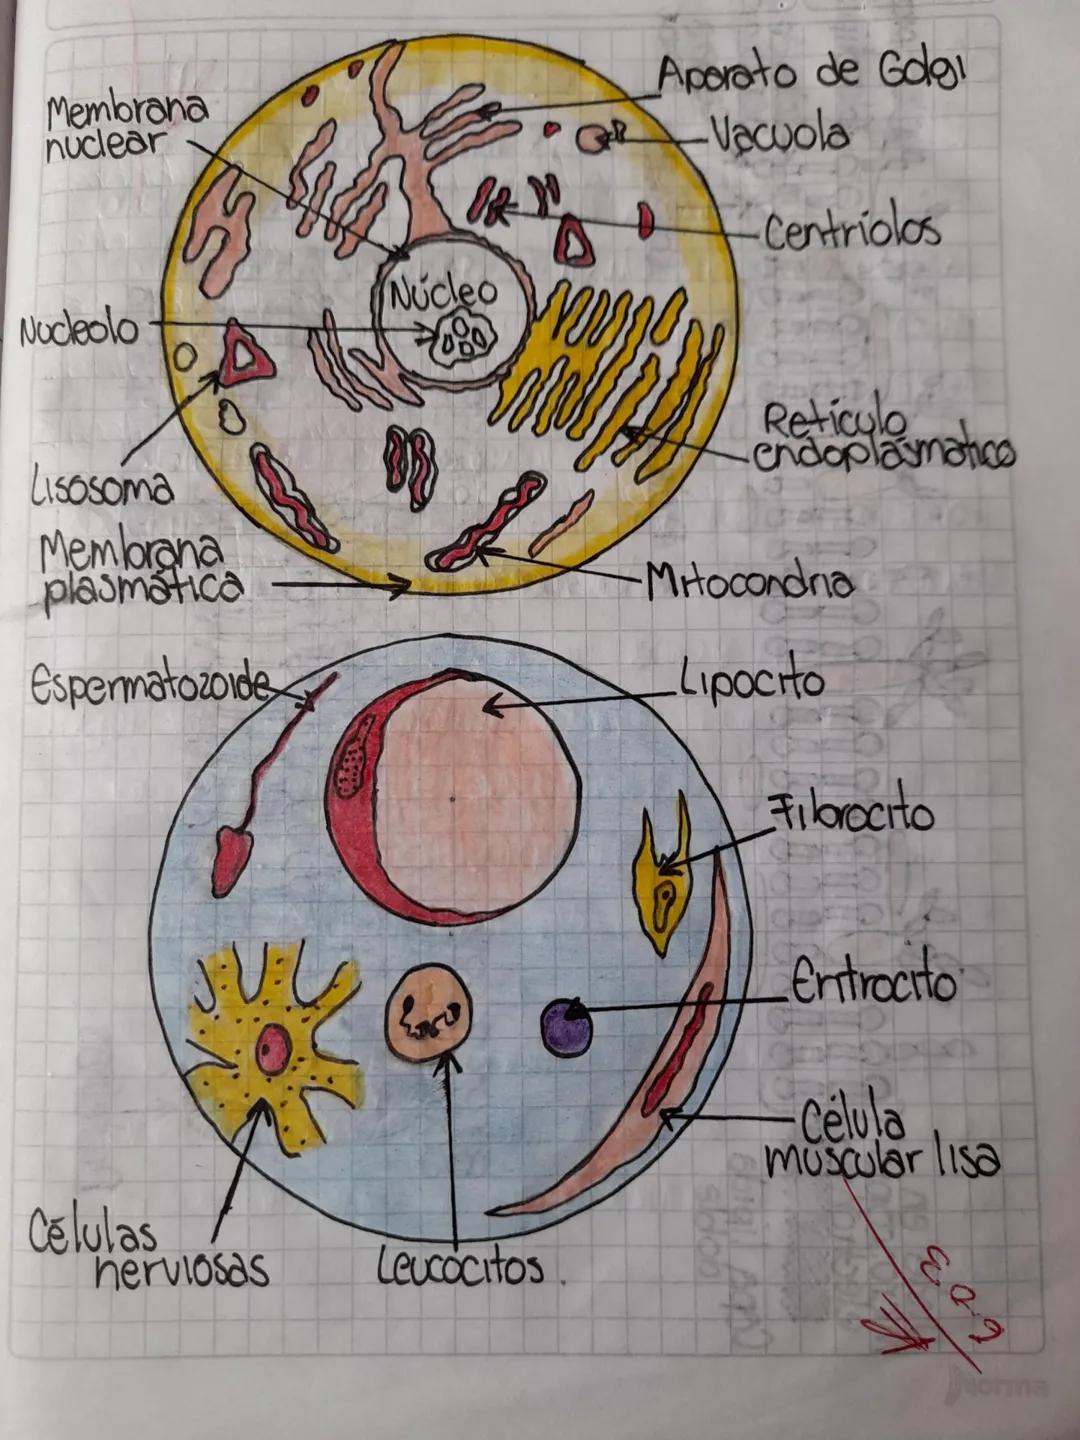 Aparato de Golgi
Membrana
nuclear
Vacuola
Centríolos
Núcleo
Nucleolo
Retículo
endoplásmatico
Lisosoma
Membrana
plasmática
Mitocondria
Espermatozoide
Lipocito
Fibrocito
Eritrocito
Célula
muscular lisa
Células
nerviosas
Leucocitos.
Norma